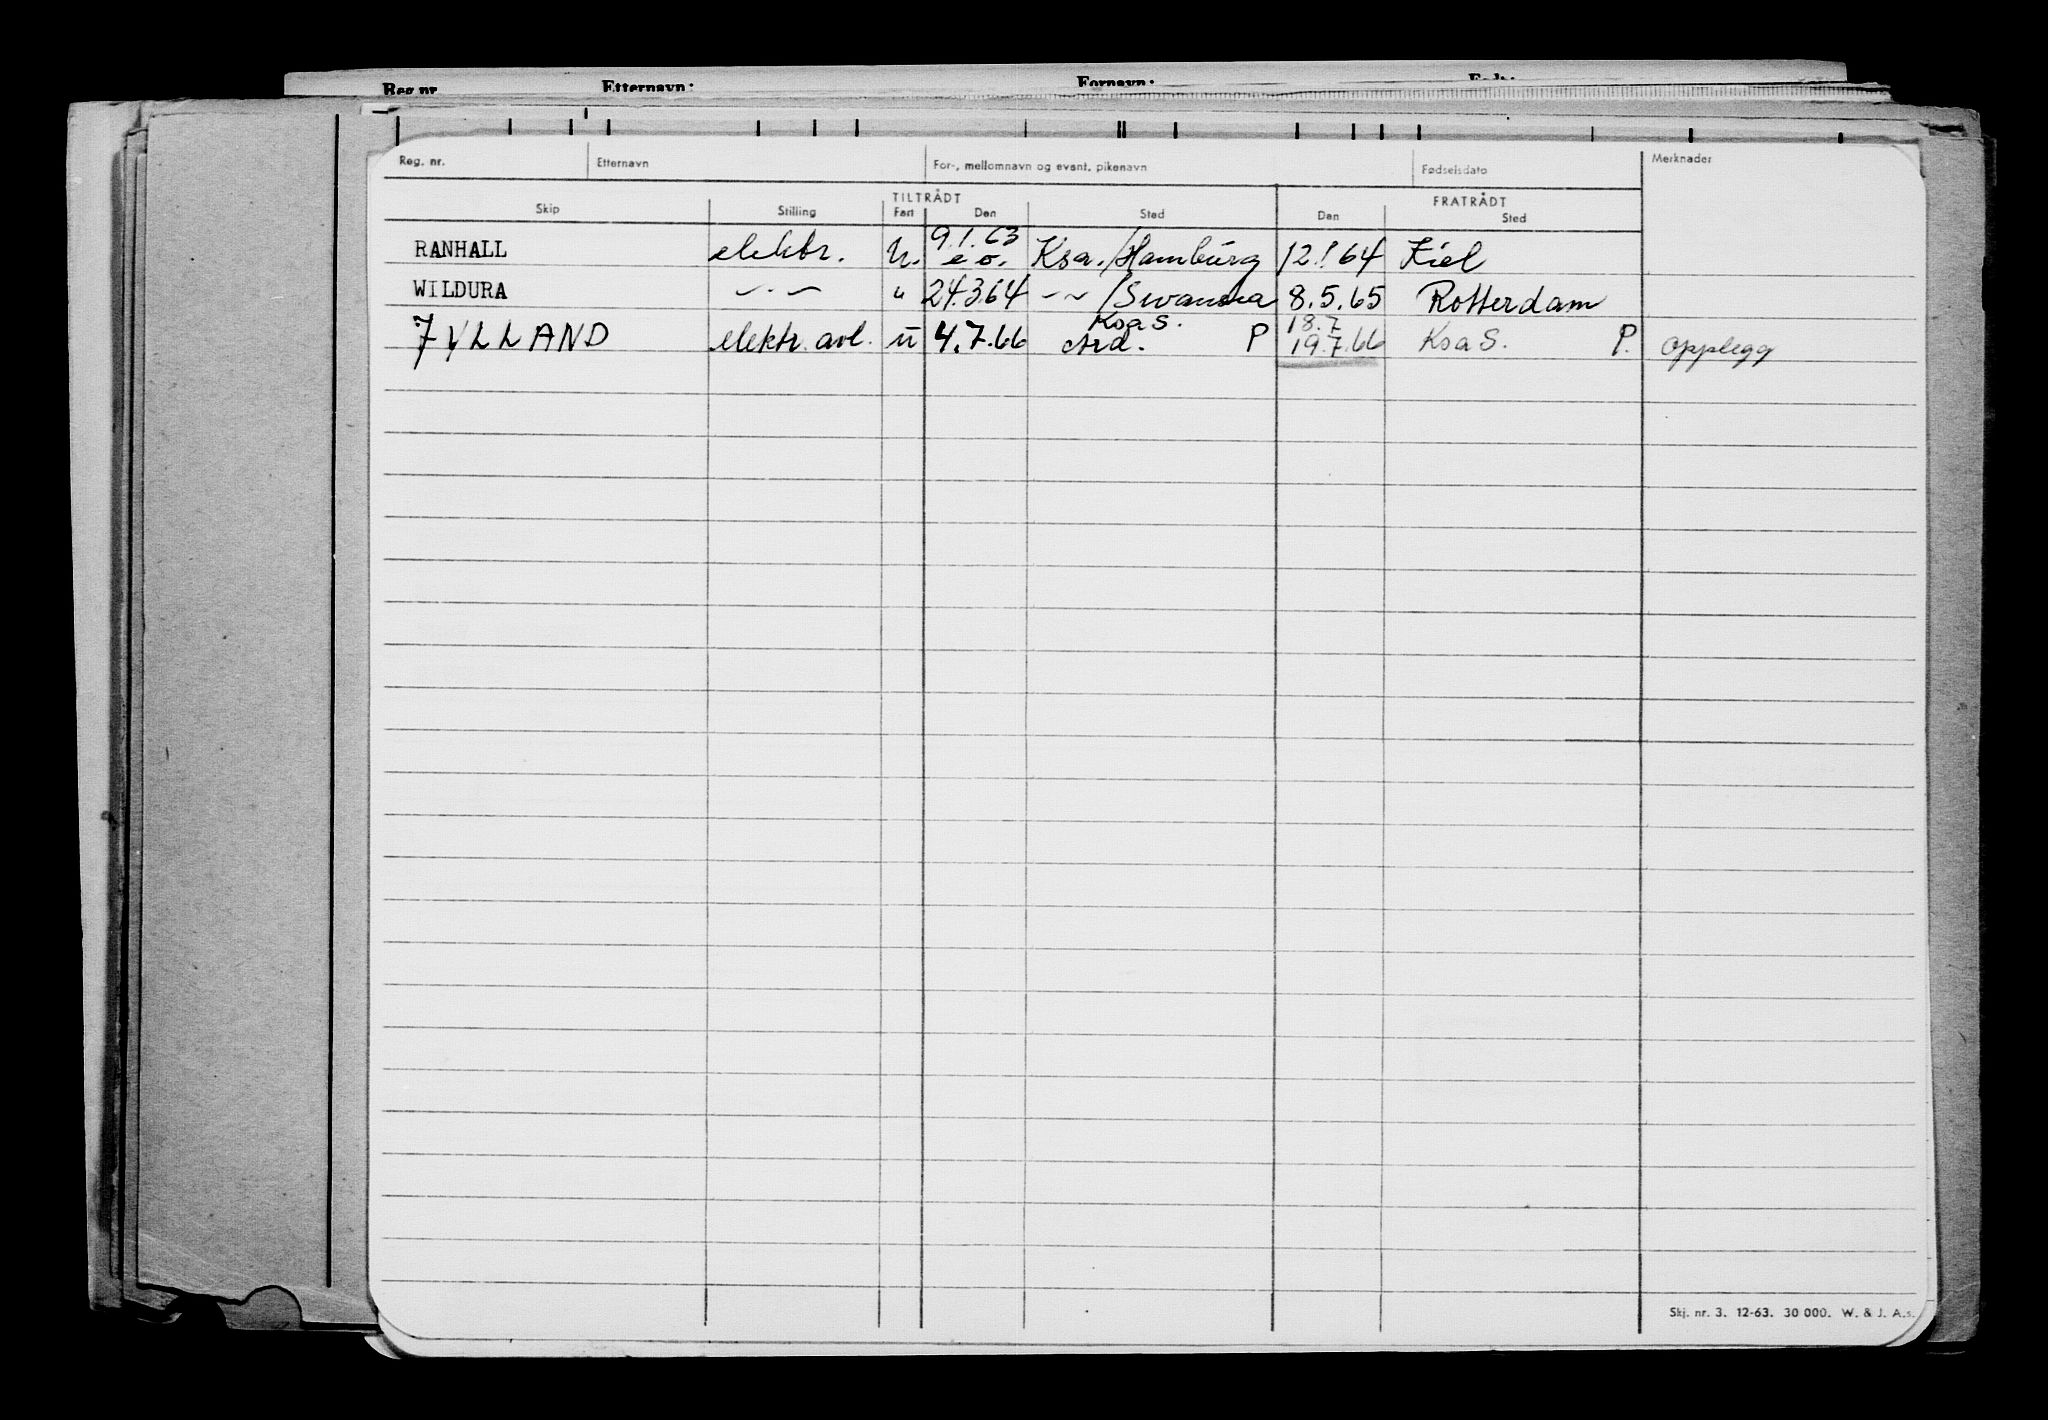 Reg. nr. Etternavn: Fornavn:
Reg. nr. Etternavn For-, mellomnavn og event. pikenavn Fødselsdato Merknader
TILTRÅDT FRATRÅDT
Skip Stilling Fart Den Sted Den Sted
RANHALL elektr. u. 9.1.63 e.o. Ksa./Hamburg 12.1 64 Kiel
WILDURA –·– " 24.3.64 –~/Swansea 8.5.65 Rotterdam
Ksa S. 18.7
JYLLAND elektr. avl. u 4.7.66 Ard. P 19.7.66 Ksa S. P. opplegg
Skj. nr. 3. 12-63. 30 000. W. & J. A.s.